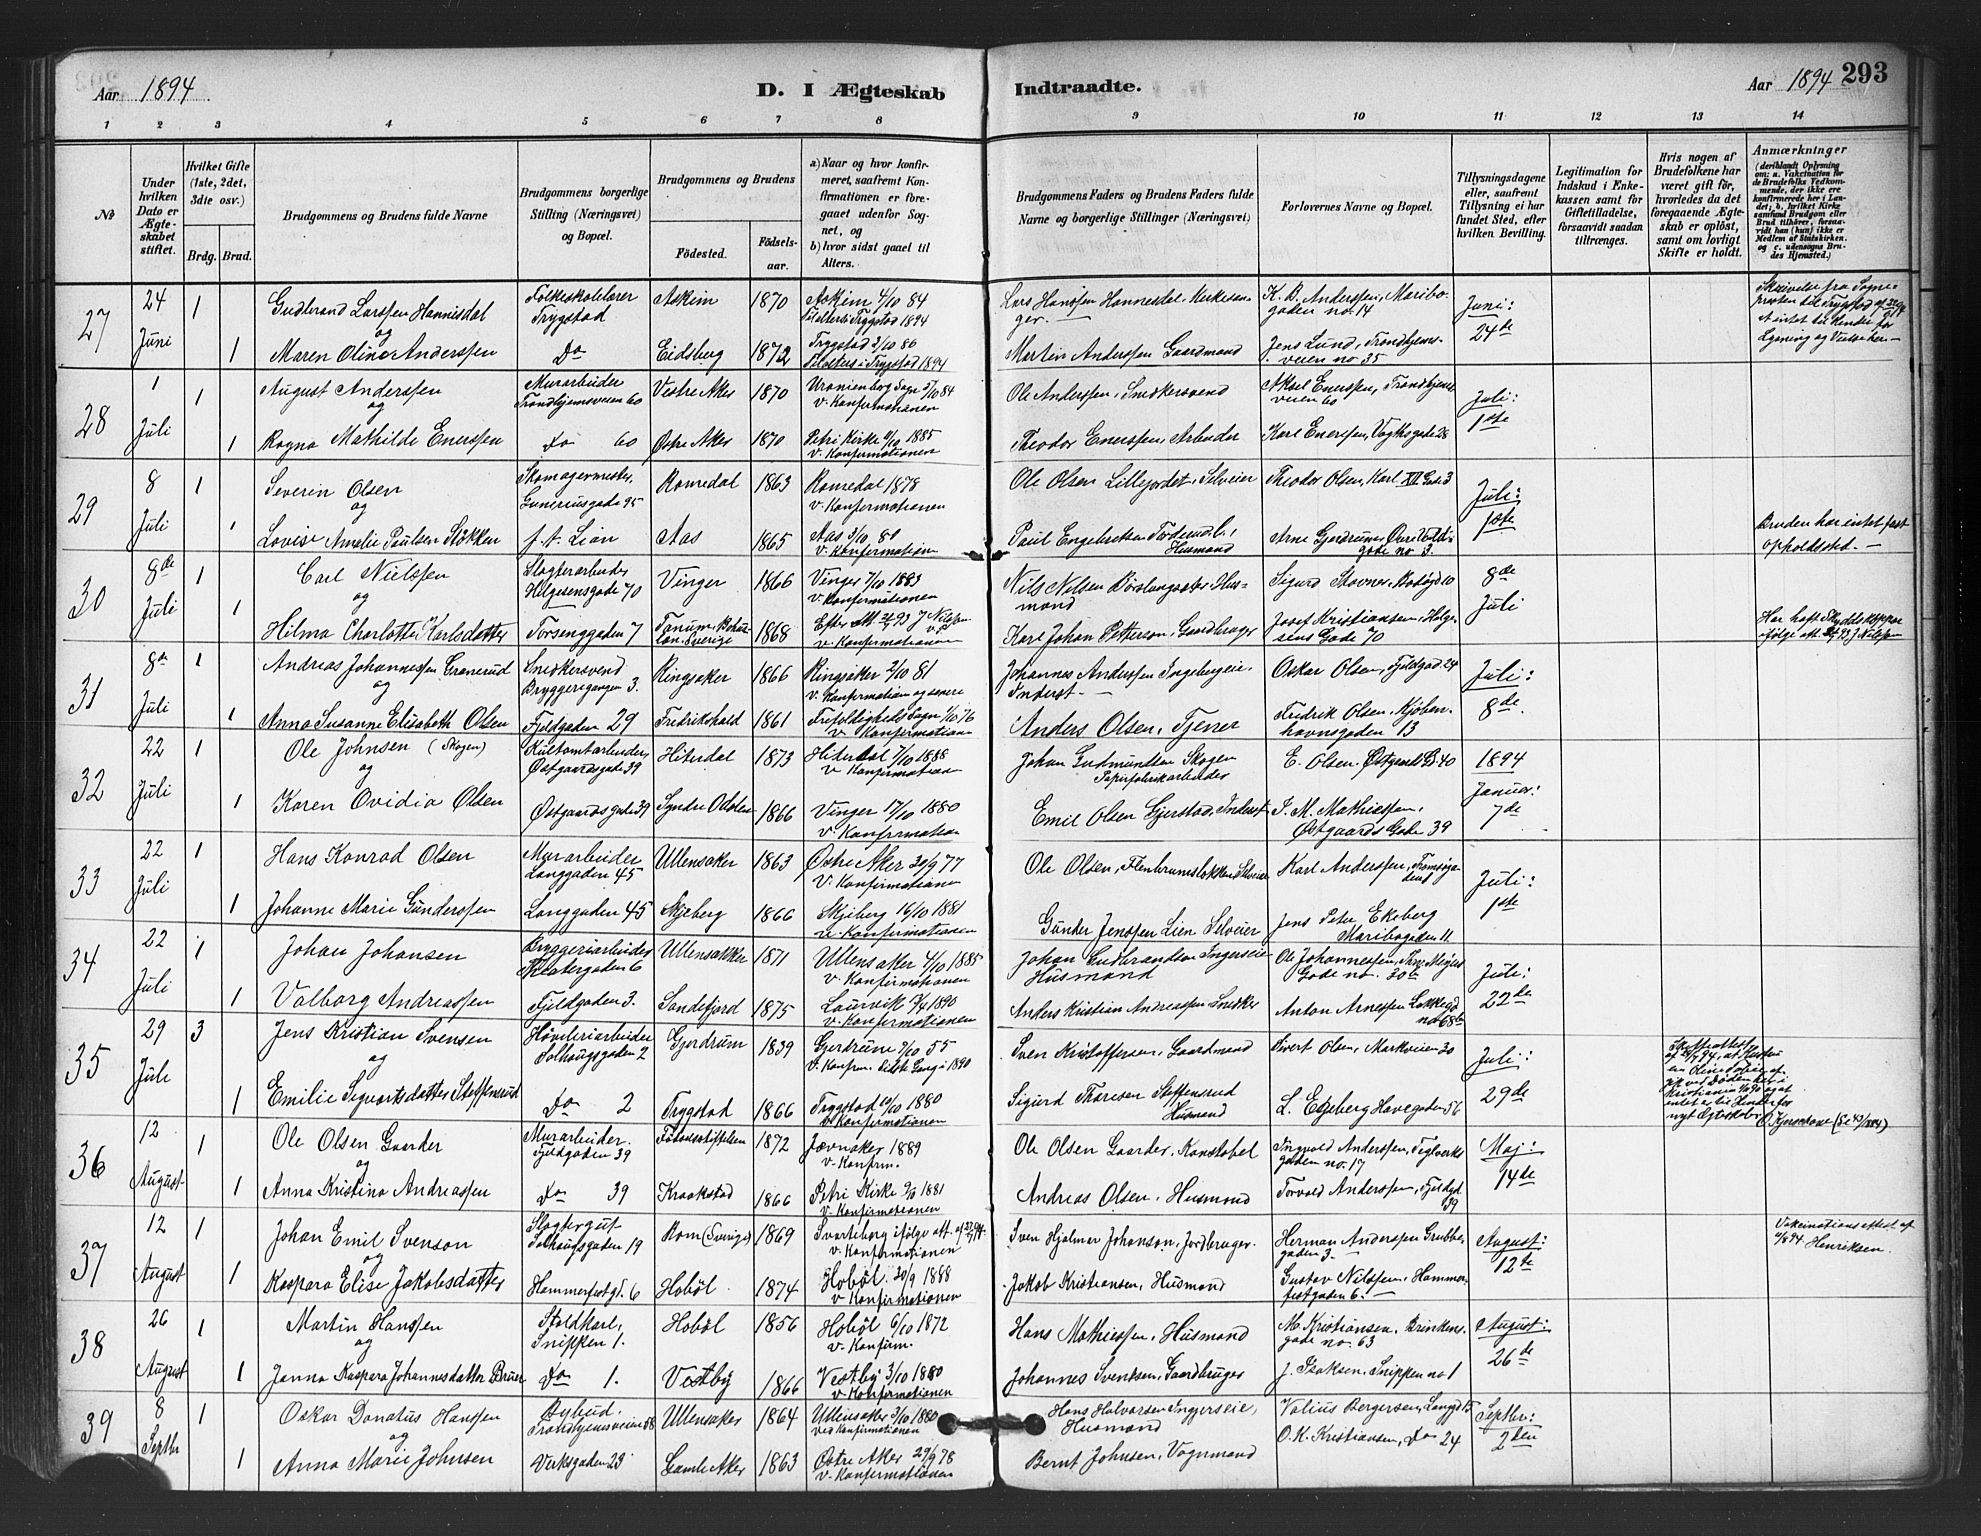 Aar 1894.
D. I Ægteskab
Indtraadte.
Aar 1894 293
1 2 3 4 5 6 7 8 9 10 11 12 13 14
№
Under hvilken Dato er Ægteskabet stiftet.
Hvilket Gifte (1ste, 2det, 3die osv.)
Brdg. Brud.
Brudgommens og Brudens fulde Navne
Brudgommens borgerlige Stilling (Næringsvei) og Bopæl.
Brudgommens og Brudens
Fødested.
Fødselsaar.
a) Naar og hvor konfirmeret, saafremt Konfirmationen er foregaaet udenfor Sognet, og
b) hvor sidst gaaet til Alters.
Brudgommens Faders og Brudens Faders fulde Navne og borgerlige Stillinger (Næringsvei)
Forlovernes Navne og Bopæl.
Tillysningsdagene eller, saafremt Tillysning ei har fundet Sted, efter hvilken Bevilling.
Legitimation for Indskud i Enkekassen samt for Giftetilladelse, forsaavidt saadan tiltrænges.
Hvis nogen af Brudefolkene har været gift før, hvorledes da det foregaaende Ægteskab er opløst, samt om lovligt Skifte er holdt.
Anmærkninger
(deriblandt Oplysning om: a. Vakcination for de Brudefolks Vedkommende, der ikke ere konfirmerede her i Landet; b. hvilket Kirkesamfund Brudgom eller Brud tilhører, forsaavidt han (hun) ikke er Medlem af Statskirken, og c. udensogns Brudes Hjemsted.)
27 24 Juni 1 Gudbrand Larssen Hannisdal Folkeskolelærer Trygstad Askim 1870 Askim 4/10 84 Til alters i Trygstad 1894
og
1 Maren Oline Anderssen Do Eidsberg 1872 Trygstad 3/10 86 Til alters i Trygstad 1894
Lars Hanssen Hannesdal K. B. Anderssen, Maribogaden no. 14 Juni: 24de Skrivelse fra Sogneprosten til Trygstad
Martin Anderssen Gaardmand Jens Lund, Trondhjemsveien no 35
28 1 Juli 1 August Anderssen Murarbeider Trondhjemsveien 60 Vestre Aker 1870 Uranienborg Sogn 5/10 84 v. Konfirmationen
og
1 Ragna Mathilde Enerssen Do 60 Østre Aker 1870 Petri Kirke 9/10 1885 v. Konfirmationen
Ole Anderssen, Snedkersvend Aksel Enerssen, Trondhjemsveien 60 Juli: 1ste
Theodor Enerssen, Arbeider Karl Enerssen, Vogtsgade 28
29 8 Juli 1 Severin Olsen Skomagermester, Guneriusgade 95 Romedal 1863 Romedal 1878 v. Konfirmationen
og
1 Lovise Amelie Paulsen Stokken f. t. Lian Aas 1865 Aas 3/10 80 v. Konfirmation
Ole Olsen Lillejordet, Selveier Theodor Olsen, Karl XII Gade 3 Juli: 1ste
Paul Engebretsen Husmand Arne Gjerdrum, Øvre gade no 3. Bruden har intet fast opholdssted. —
30 8de Juli 1 Carl Nielssen Slagterarbeider Helgesensgade 70 Vinger 1866 Vinger 7/10 1883 v. Konfirmationen
og
1 Hilma Charlotte Karlsdatter Torsenggaden 7 Tanum, Bohuslän, Sverige 1868 v. Konfirmationen
Nils Nilsen Husmand Sigurd Stovner, Bodøgd 10 8de Juli
Karl Johan Petterson, Gaardbruger Josef Kristiansen, Helgesens Gade 70
31 8de Juli 1 Andreas Johannessen Granerud Snedkersvend Bryggerigangen 3. Ringsaker 1866 Ringsaker 2/10 81 v. Konfirmation og senere
og
1 Anna Susanne Elisabeth Olsen Fjeldgaden 29 Fredrikshald 1861 Trefoldigheds Sogn 1/10 76 v. Konfirmation
Johannes Anderssen Ingebergeie, Inderst. — Oskar Olsen, Fjeldgad 24 Juli: 8de.
Anders Olsen, Tjener Fredrik Olsen, Kjøbenhavnsgaden 13
32 22 Juli 1 Ole Johnsen (Skogen) Østgaardsgade 39 Hiterdal 1873 Hiterdal 7/10 1888 v. Konfirmationen
og
1 Karen Ovidia Olsen Østgaardsgade 39 Søndre Odalen 1866 Vinger 17/10 1880 v. Konfirmation
Johan Gudmundsen Skogen Papirfabrikarbeider E. Olsen, Østgaards Gd 40 1894 Januar: 7de
Emil Olsen Gjerstad, Inderst S. M. Mathiessen, Østgaards Gade 39
33 22 Juli 1 Hans Konrad Olsen Murarbeider Langgaden 45 Ullensaker 1863 Østre Aker 30/9 77 v. Konfirmationen
1 Johanne Marie Gundersen Langgaden 45 Skjeberg 1866 Skjeberg 16/10 1881 v. Konfirmationen
Ole Olsen, Selveier Karl Andreassen, Tromsøgaden 1 Juli: 1ste
Gunder Jenssen Lien Selveier Jens Peter Ekeberg Maribogaden 11.
34 22 Juli 1 Johan Johansen Bryggeriarbeider Theatergaden 6 Ullensaker 1871 Ullensaker 4/10 1885 v. Konfirmationen
1 Valborg Andreassen Fjeldgaden 3. Sandefjord 1875 Laurvik 1890 v. Konfirmationen
Johan Gudbrandsen Ingerseie Husmand Ole Johannessen, Thv. Meyers Gade no. 30b Juli: 22de
Anders Kristian Andreassen Snedker Anton Arnessen, Lakkegd no 68b
35 29 Juli 3 Jens Kristian Svensen Høvleriarbeider Solhaugsgaden 2 Gjerdrum 1839 Gjerdrum 7/10 55 v. Konfirm. sidste Gang i 1890
og
1 Emilie Sigvartsdatter Steffensrud Do 2 Trygstad 1866 Trygstad 10/10 1880 v. Konfirmationen
Sven Kristoffersen, Gaardmand Sivert Olsen, Markveien 30 Juli: 29de
Sigurd Thoresen Steffensrud Husmand L. Ekeberg Havegaden 56
36 12 August 1 Ole Olsen Gaarder Murarbeider. Fjeldgaden 39 Fødselsstiftelsen 1872 Jævnaker 1889 v. Konfirm.
og
1 Anna Kristine Andreassen Do 39 Kraakstad 1866 Petri Kirke 9/10 1881 v. Konfirmationen
Ole Olsen Gaarder, Konstabel Ingvald Anderssen, Teglverksgaden no. 17 Maj: 14de
Andreas Olsen, Husmand Torvald Anderssen, Fjeldgd 39
37 12 August 1 Johan Emil Svenson Slagtergut Solhaugsgaden 19 Rom (Sverige) 1869 Svarteborg ifølge att. v. Konfirmationen
og
1 Kaspara Elise Jakobsdatter Hammerfestgd. 6 Hobøl 1874 Hobøl 30/9 1888 v. Konfirmationen
Sven Hjalmar Johanson, Jordbruger. Herman Anderssen Grubbegaden 3. — August: 12te Vakcinationsattest af Henriksen.
Jakob Kristiansen, Husmand Gustav Nilssen, Hammerfestgaden 6. —
38 26 August 1 Martin Hanssen Staldkarl, Snippen 1. Hobøl 1856 Hobøl 6/10 1872 v. Konfirm.
og
1 Janna Kaspara Johannesdatter Bruer Do 1. Vestby 1866 Vestby 3/10 1880 v. Konfirmationen
Hans Mathiessen, Husmand M. Kristiansen, Brinkensgade no. 63 August: 26de
Johannes Svensken, Gaardbruger J. Isaksen, Snippen no 1
39 8 Septbr 1 Oskar Donatus Hanssen Bybud, Trondhjemsveien 58 Ullensaker 1864 Ullensaker 3/10 1880 ved Konfirmationen
og
1 Anna Marie Johnsen Verksgaden 23 Gamle Aker 1863 Østre Aker 29/9 78 v. Konfirmationen
Hans Halvorsen Inggerseie, Husmand Valius Bergersen, Langgd 15 Septbr: 2den
Bernt Johnsen, Vognmand O. K. Kristiansen, Do 24